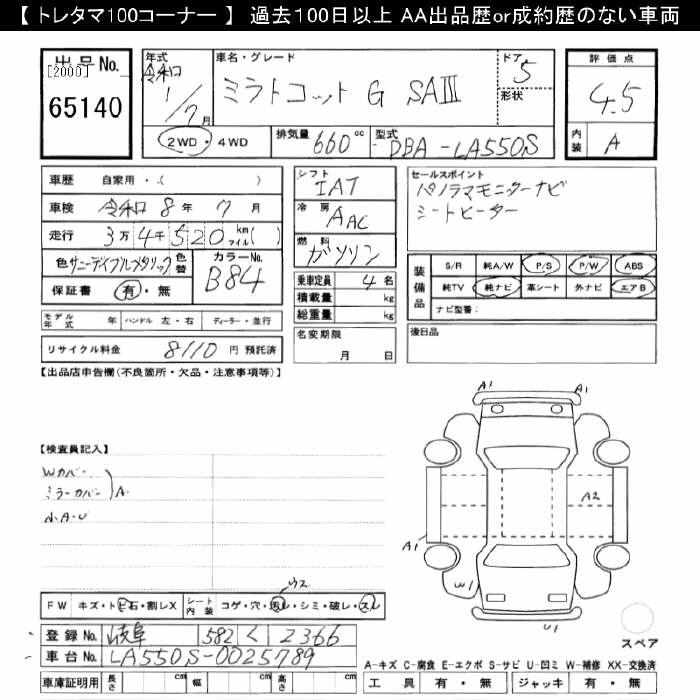 【 トレタマ100コーナー 】 過去100日以上 AA出品歴or成約歴のない車両
出品No.
[2000]
65140
年式 令和 1/7月
車名・グレード
ミラトコット G SAⅢ
ドア 5
形状
評価点
4.5
内装 A
2WD・4WD
排気量 660 cc
型式 DBA-LA550S
車歴 自家用・( )
車検 令和 8年 7月
走行 3万4千520 km マイル( )
色 サニーデイブルメタリック 色替
カラーNo. B84
保証書 有・無
シフト IAT
冷房 AAC
燃料 ガソリン
乗車定員 4名
積載量 kg
総重量 kg
セールスポイント
パノラマモニターナビ
シートヒーター
装備品
S/R 純A/W P/S P/W ABS
純TV 純ナビ 革シート 外ナビ エアB
ナビ型番:
モデル年式 年 ハンドル 左・右 ディーラー・並行
リサイクル料金 8110円 預託済
名変期限
月 日
後日品
【出品店申告欄(不良箇所・欠品・注意事項等)】
【検査員記入】
Wカバー
ミラーカバー A
小A-U
A1
A1
A2
A1
W1
U1
スペア
FW キズ・トビ石・割レX
シート内装 コゲ・穴・汚レ・シミ・破レ・スレ
ウス
登録No. 岐阜 582 く 2366
車台No. LA550S-0025789
車庫証明用 長さ cm 幅 cm 高さ cm
A-キズ C-腐食 E-エクボ S-サビ U-凹ミ W-補修 XX-交換済
工具 有・無 ジャッキ 有・無